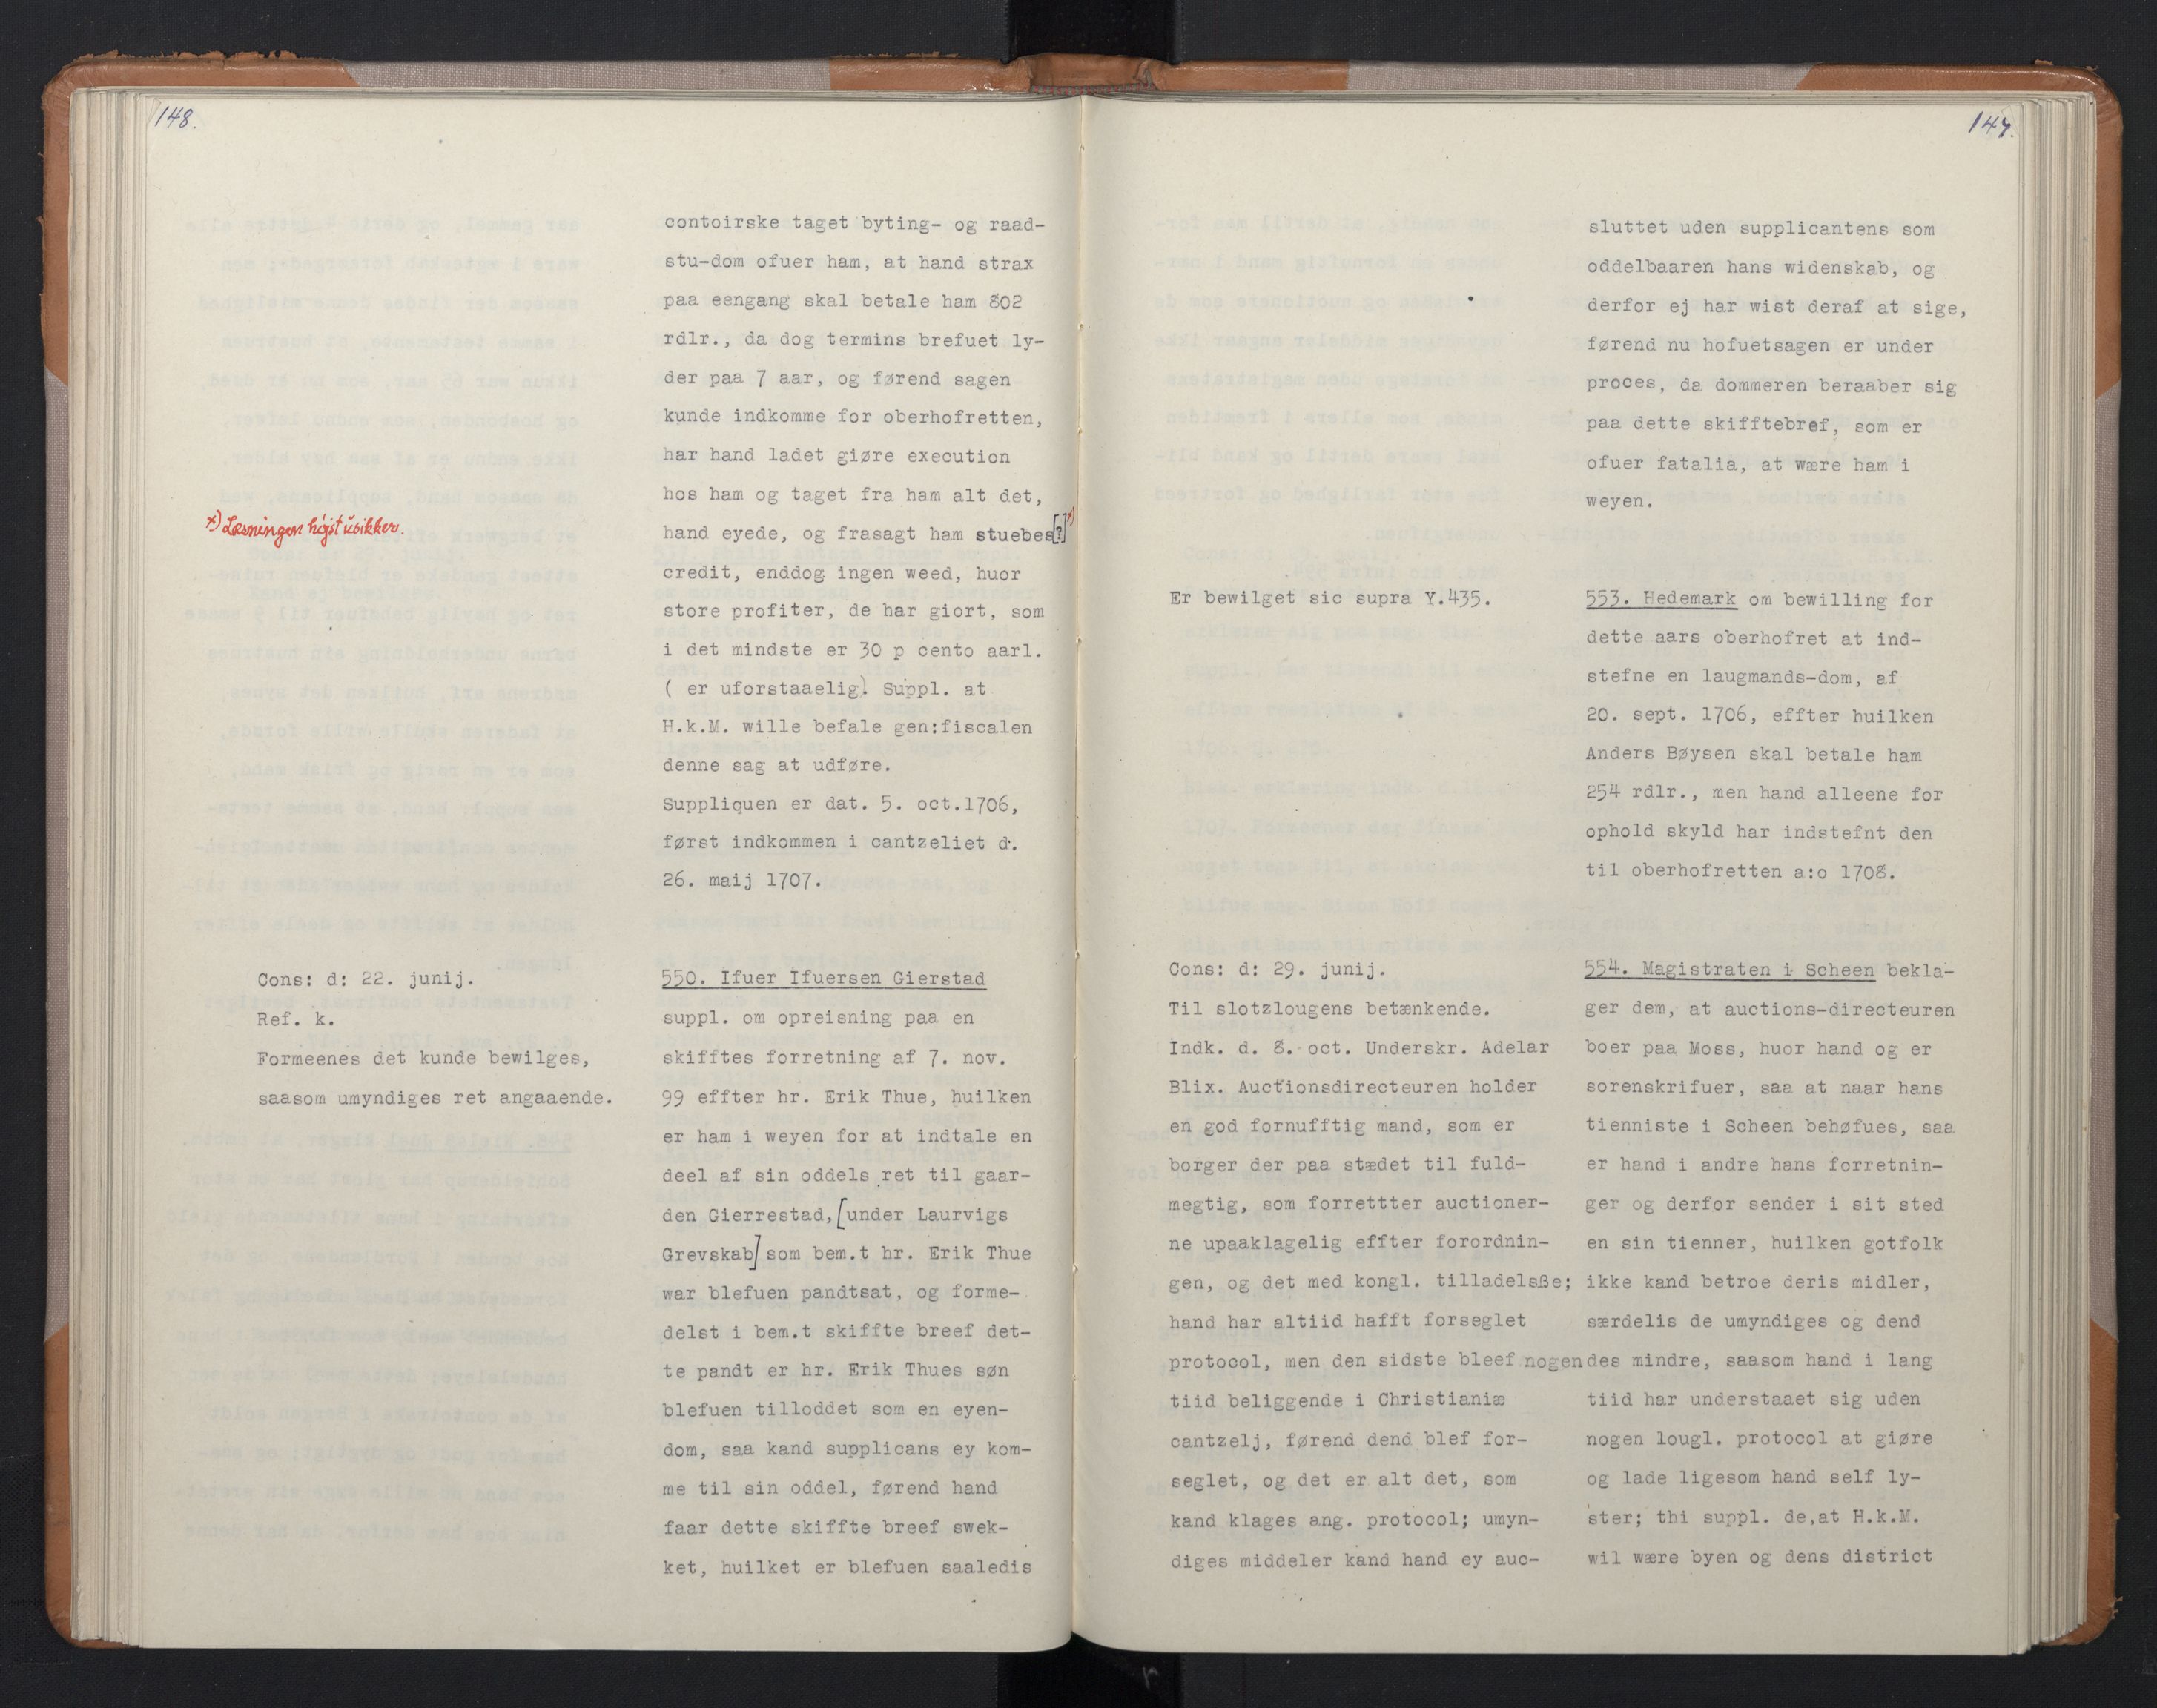 148.
contoirske taget byting- og raad-
stu-dom ofuer ham, at hand strax
paa eengang skal betale ham 802
rdlr., da dog termins brefuet ly-
der paa 7 aar, og førend sagen
kunde indkomme for oberhofretten,
har hand ladet giøre execution
hos ham og taget fra ham alt det,
hand eyede, og frasagt ham stuebes[?] x)
x) Læsningen højst usikker.
credit, enddog ingen weed, huor
store profiter, de har giort, som
i det mindste er 30 p cento aarl.
( er uforstaaelig). Suppl. at
H.k.M. wille befale gen:fiscalen
denne sag at udføre.
Suppliquen er dat. 5. oct.1706,
først indkommen i cantzeliet d.
26. maij 1707.
Cons: d: 22. junij.
Ref. k.
Formeenes det kunde bewilges,
saasom umyndiges ret angaaende.
550. Ifuer Ifuersen Gierstad
suppl. om opreisning paa en
skifftes forretning af 7. nov.
99 effter hr. Erik Thue, huilken
er ham i weyen for at indtale en
deel af sin oddels ret til gaar-
den Gierrestad, [under Laurvigs
Grevskab] som bem.t hr. Erik Thue
war blefuen pandtsat, og forme-
delst i bem.t skiffte breef det-
te pandt er hr. Erik Thues søn
blefuen tilloddet som en eyen-
dom, saa kand supplicans ey kom-
me til sin oddel, førend hand
faar dette skiffte breef swek-
ket, huilket er blefuen saaledis
147.
sluttet uden supplicantens som
oddelbaaren hans widenskab, og
derfor ej har wist deraf at sige,
førend nu hofuetsagen er under
proces, da dommeren beraaber sig
paa dette skifftebref, som er
ofuer fatalia, at wære ham i
weyen.
Er bewilget sic supra Y.435.
553. Hedemark om bewilling for
dette aars oberhofret at ind-
stefne en laugmands-dom, af
20. sept. 1706, effter huilken
Anders Bøysen skal betale ham
254 rdlr., men hand alleene for
ophold skyld har indstefnt den
til oberhofretten a:o 1708.
Cons: d: 29. junij.
Til slotzlougens betænkende.
Indk. d. 8. oct. Underskr. Adelar
Blix. Auctionsdirecteuren holder
en god fornufftig mand, som er
borger der paa stædet til fuld-
megtig, som forrettter auctioner-
ne upaaklagelig effter forordnin-
gen, og det med kongl. tilladelsße;
hand har altiid hafft forseglet
protocol, men den sidste bleef nogen
tiid beliggende i Christianiæ
cantzelj, førend dend blef for-
seglet, og det er alt det, som
kand klages ang. protocol; umyn-
diges middeler kand hand ey auc-
554. Magistraten i Scheen bekla-
ger dem, at auctions-directeuren
boer paa Moss, huor hand og er
sorenskrifuer, saa at naar hans
tienniste i Scheen behøfues, saa
er hand i andre hans forretnin-
ger og derfor sender i sit sted
en sin tienner, huilken gotfolk
ikke kand betroe deris midler,
særdelis de umyndiges og dend
des mindre, saasom hand i lang
tiid har understaaet sig uden
nogen lougl. protocol at giøre
og lade ligesom hand self ly-
ster; thi suppl. de,at H.k.M.
wil wære byen og dens district